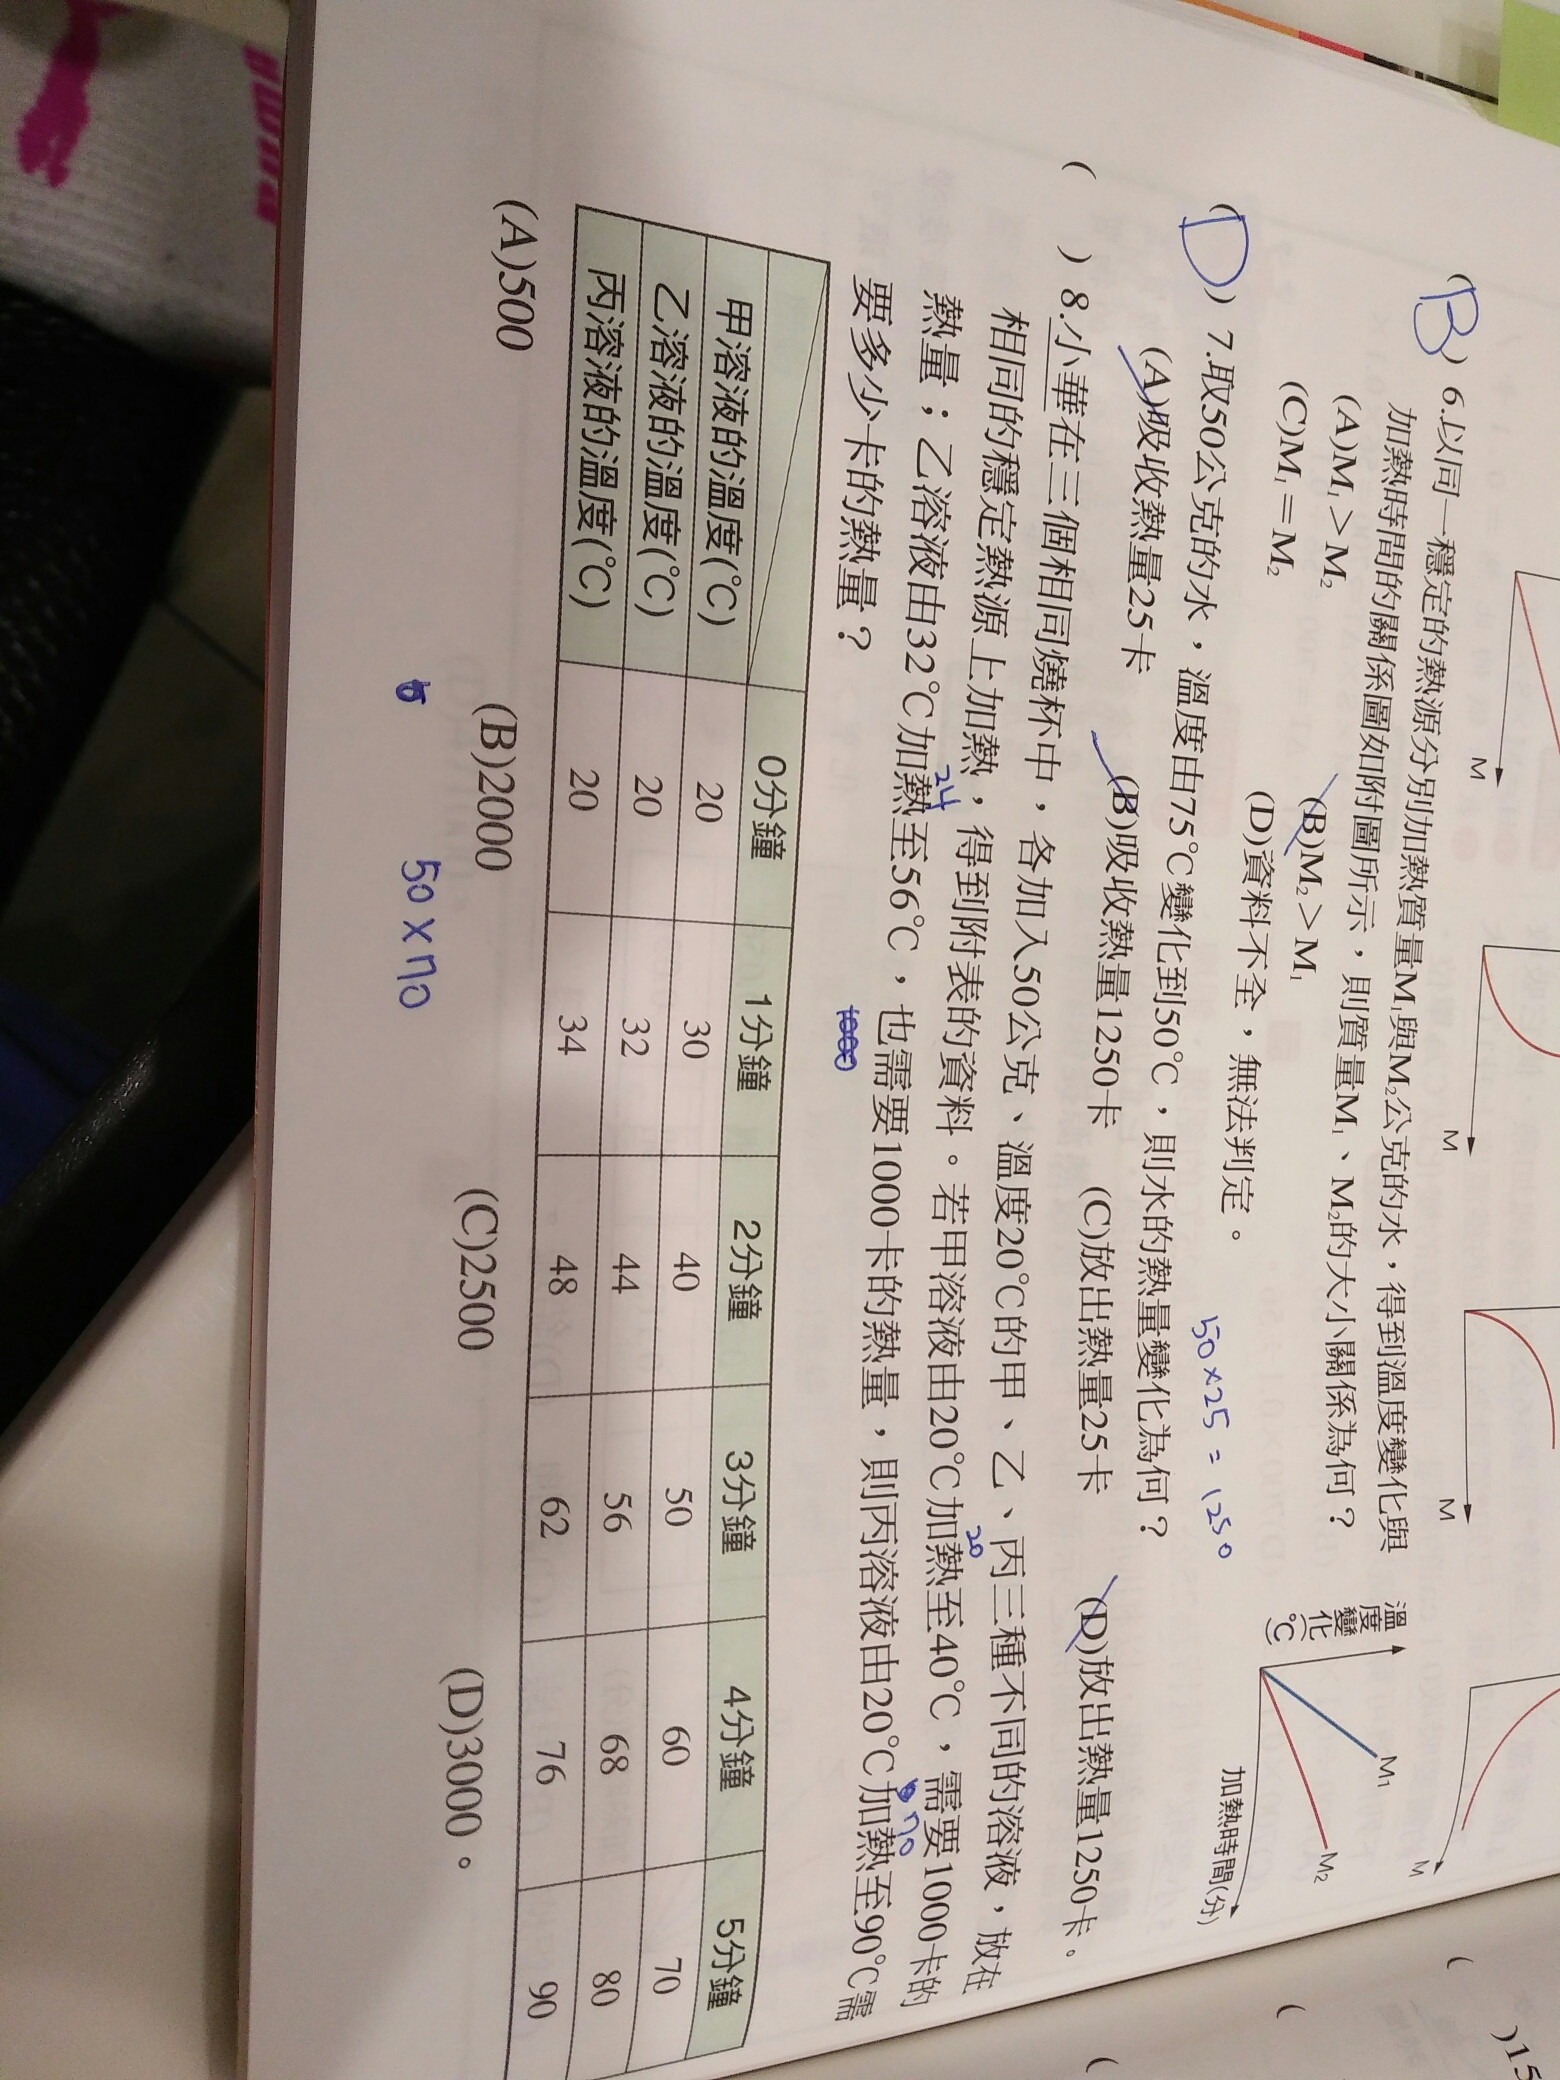 M
M
M
M
(B) 6.以同一穩定的熱源分別加熱質量M₁與M₂公克的水，得到溫度變化與
加熱時間的關係圖如附圖所示，則質量M₁、M₂的大小關係為何？
(A)M₁＞M₂ (B)M₂＞M₁
(C)M₁＝M₂ (D)資料不全，無法判定。
溫度變化(℃)
M₁
M₂
加熱時間(分)
50×25 = 1250
(D) 7.取50公克的水，溫度由75℃變化到50℃，則水的熱量變化為何？
(A)吸收熱量25卡 (B)吸收熱量1250卡 (C)放出熱量25卡 (D)放出熱量1250卡。
( ) 8.小華在三個相同燒杯中，各加入50公克、溫度20℃的甲、乙、丙三種不同的溶液，放在
相同的穩定熱源上加熱，得到附表的資料。若甲溶液由20℃加熱至40℃，需要1000卡的
20
熱量；乙溶液由32℃加熱至56℃，也需要1000卡的熱量，則丙溶液由20℃加熱至90℃需
24
70
要多少卡的熱量？
1000
0分鐘 1分鐘 2分鐘 3分鐘 4分鐘 5分鐘
甲溶液的溫度(℃) 20 30 40 50 60 70
乙溶液的溫度(℃) 20 32 44 56 68 80
丙溶液的溫度(℃) 20 34 48 62 76 90
(A)500 (B)2000 (C)2500 (D)3000。
50×70
( )15
(
(
(